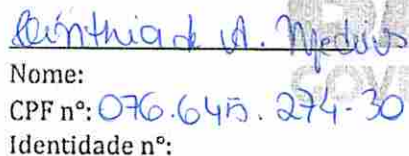 Cinthia de A. Medeiros
Nome:
CPF nº: 076.645.274-30
Identidade nº: